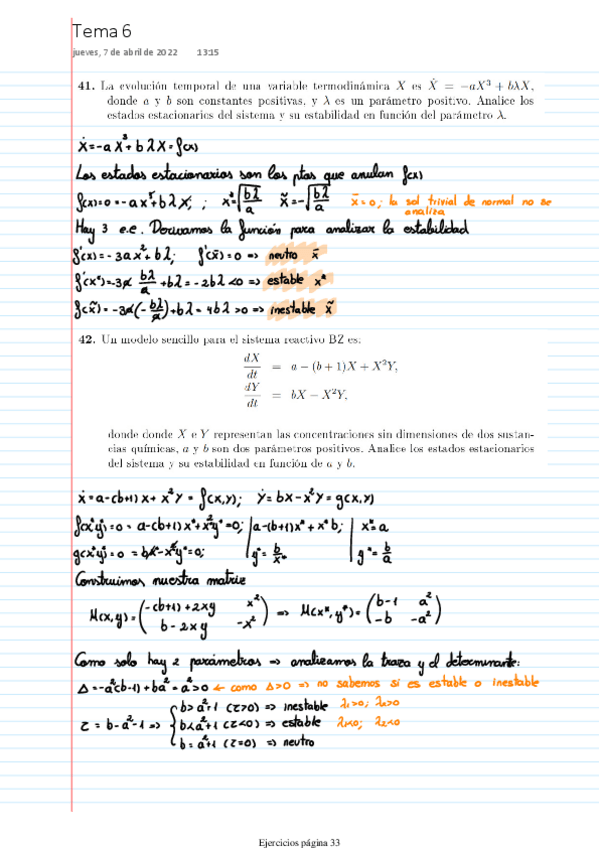 Tema 6
jueves, 7 de abril de 2022 13:15
41. La evolución temporal de una variable termodinámica X es Ẋ = −aX³ + bλX,
donde a y b son constantes positivas, y λ es un parámetro positivo. Analice los
estados estacionarios del sistema y su estabilidad en función del parámetro λ.
ẋ = -a x³ + b λ x = f(x)
Los estados estacionarios son los ptos que anulan f(x)
x̄ = 0; la sol trivial de normal no se
analiza
Hay 3 e.e. Derivamos la función para analizar la estabilidad
f'(x) = -3ax² + bλ; f'(x̄) = 0 => neutro x̄
f'(x*) = -3a bλ/a + bλ = -2bλ <0 => estable x*
f(x̃) = -3a(-bλ/a) + bλ = 4bλ >0 => inestable x̃
42. Un modelo sencillo para el sistema reactivo BZ es:
dX/dt = a − (b + 1)X + X²Y,
dY/dt = bX − X²Y,
donde donde X e Y representan las concentraciones sin dimensiones de dos sustan-
cias químicas, a y b son dos parámetros positivos. Analice los estados estacionarios
del sistema y su estabilidad en función de a y b.
ẋ = a-(b+1)x + x²y = f(x,y); ẏ = bx - x²y = g(x,y)
f(x*,y*) = 0 = a-(b+1)x* + x*²y* = 0; | a-(b+1)x* + x*b; | x* = a
g(x*,y*) = 0 = bx* - x*²y* = 0; | y* = b/x* | y* = b/a
Construimos nuestra matriz
M(x,y) = (-(b+1)+2xy x² ; b-2xy -x²) => M(x*,y*) = (b-1 a² ; -b -a²)
Como solo hay 2 parámetros => analizamos la traza y el determinante:
Δ = -a²(b-1) + ba² = a² >0 ← como Δ>0 => no sabemos si es estable o inestable
b > a²+1 (τ>0) => inestable λ₁>0; λ₂>0
τ = b-a²-1 => b < a²+1 (τ<0) => estable λ₁<0; λ₂<0
b = a²+1 (τ=0) => neutro
Ejercicios página 33